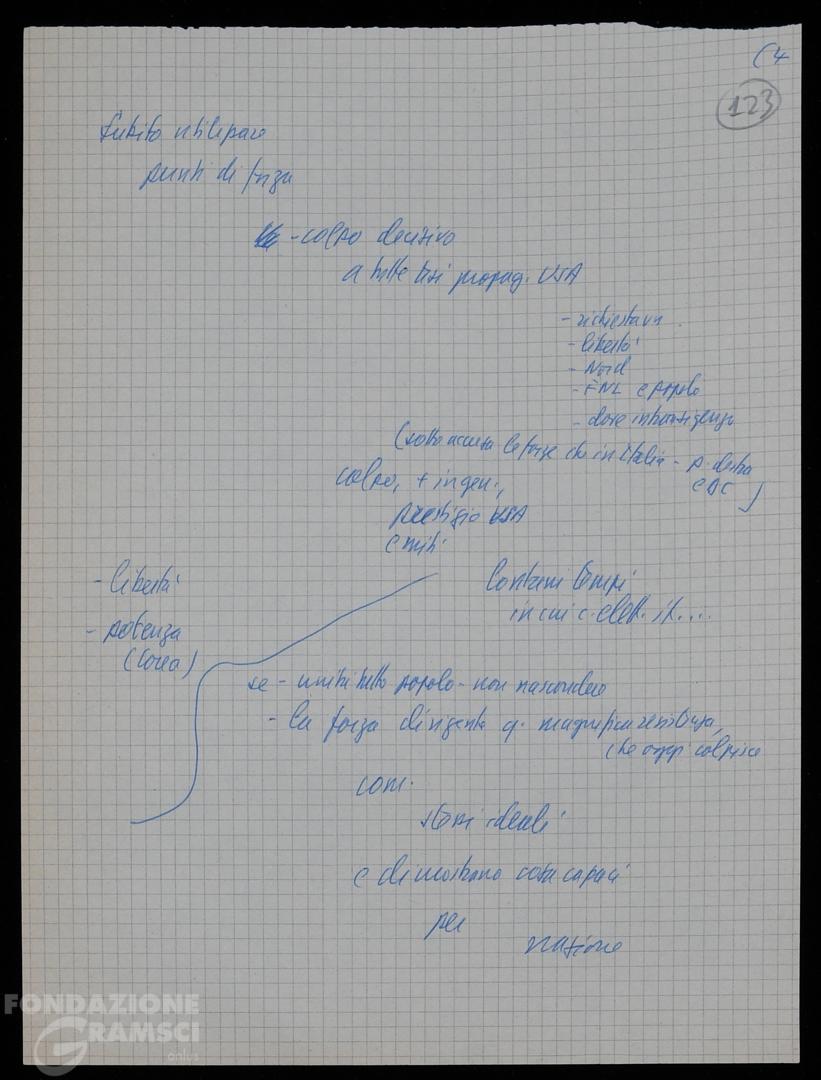 (4
123
Subito utilizzare
punti di forza
- colpo decisivo
a tutte tesi propag. USA
- richiesta vn
- libertà
- Nord
- FNL e popolo
- dove intransigenza
(sotto accusa le forze che in Italia - p. destra
e DC)
colpo, + ingen.,
prestigio USA
e miti
- libertà
- potenza
(Corea)
Lontani tempi
in cui c. elett. it....
se - uniti tutto popolo - non nascondere
- la forza dirigente q. magnifica resistenza,
che oggi colpisce
com.
stessi ideali
e dimostrano cosa capaci
per
nazione
FONDAZIONE
GRAMSCI
onlus